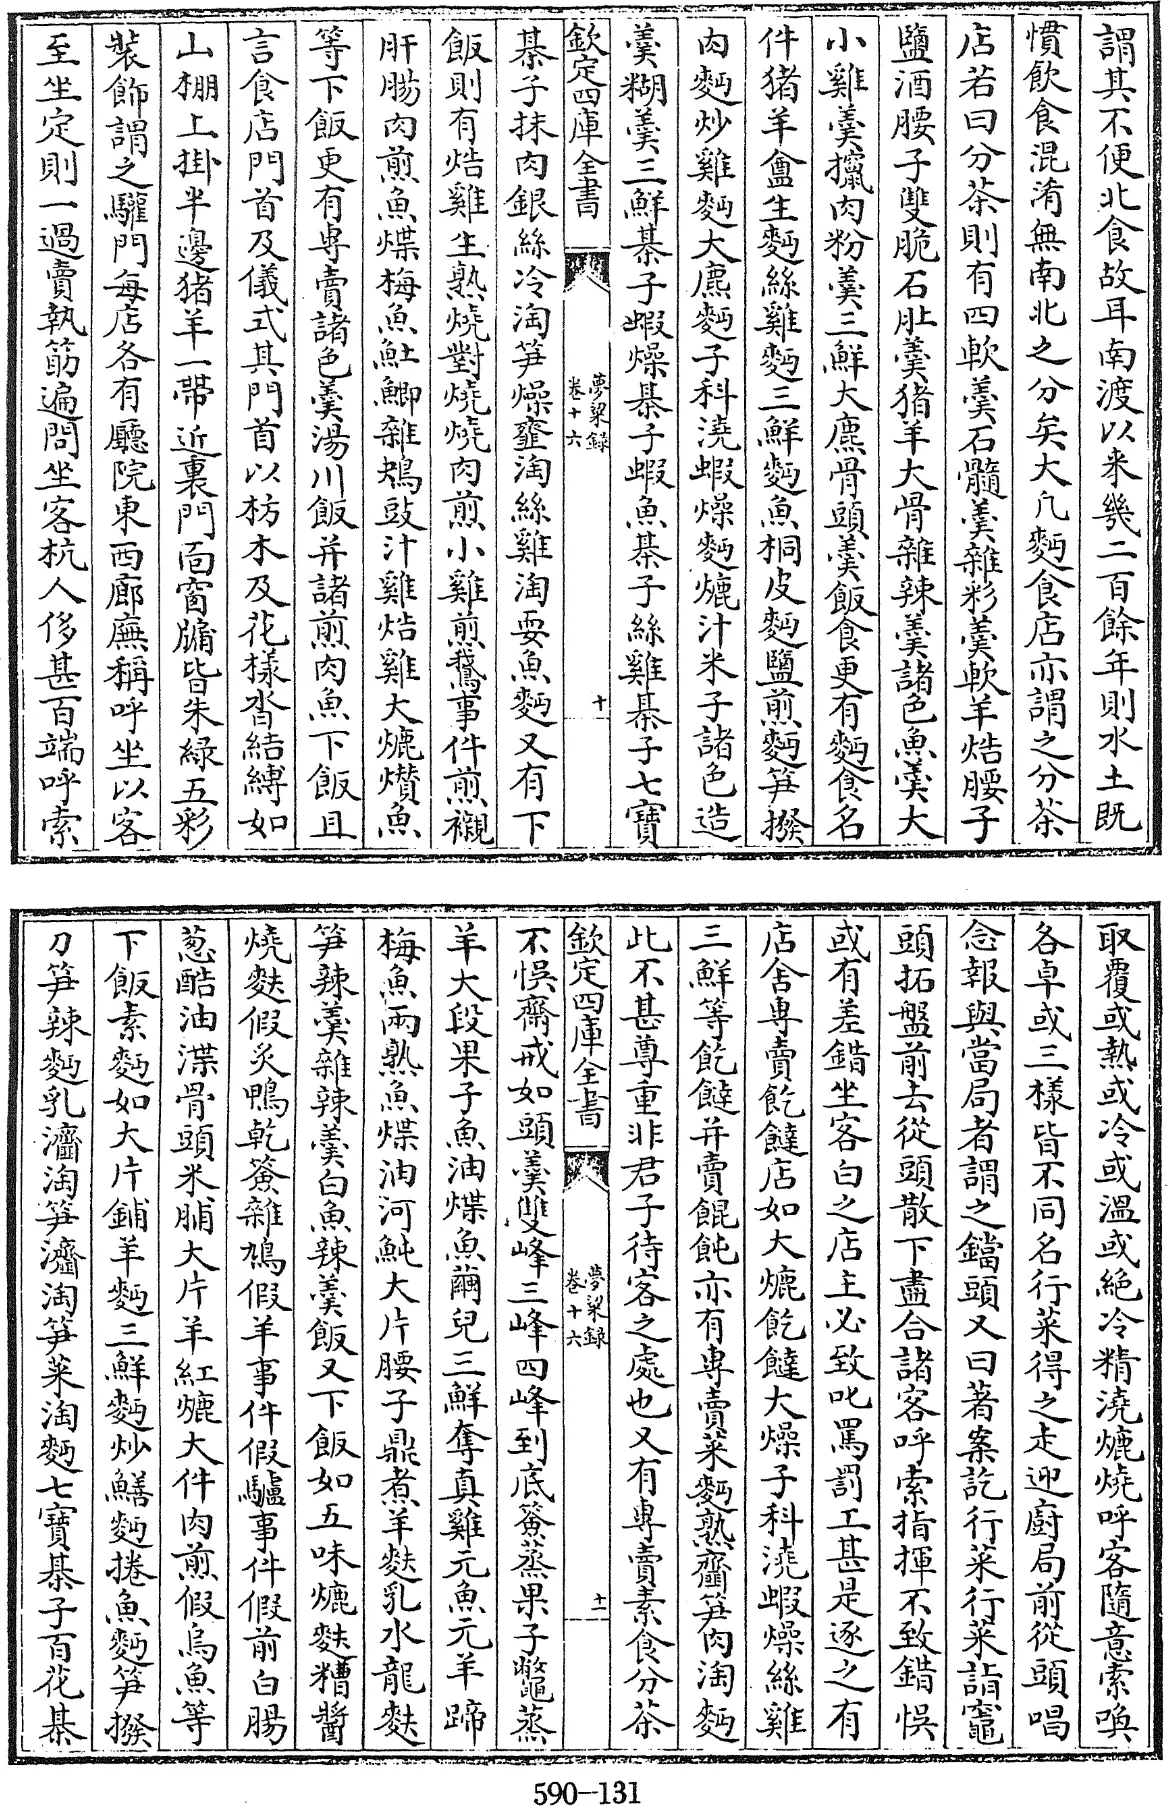 謂其不便北食故耳南渡以来幾二百餘年則水土既
慣飲食混淆無南北之分矣大凡麪食店亦謂之分茶
店若曰分茶則有四軟羹石髓羹雜彩羹軟羊焅腰子
鹽酒腰子雙脆石肚羹猪羊大骨雜辣羹諸色魚羹大
小雞羹攛肉粉羹三鮮大熝骨頭羹飯食更有麪食名
件猪羊盦生麪絲雞麪三鮮麪魚桐皮麪鹽煎麪笋撥
肉麪炒雞麪大熝麪子料澆蝦燥麪熝汁米子諸色造
羹糊羹三鮮棊子蝦燥棊子蝦魚棊子絲雞棊子七寶
欽定四庫全書
夢粱錄
卷十六
十
棊子抹肉銀絲冷淘笋燥虀淘絲雞淘耍魚麪又有下
飯則有焅雞生熟燒對燒燒肉煎小雞煎鵝事件煎襯
肝腸肉煎魚煠梅魚魟鯽雜鴂豉汁雞焅雞大熝爦魚
等下飯更有専賣諸色羹湯川飯并諸煎肉魚下飯且
言食店門首及儀式其門首以枋木及花様沓結縛如
山棚上掛半邊猪羊一帶近裏門面窗牖皆朱緑五彩
裝飾謂之驩門每店各有廳院東西廊廡稱呼坐以客
至坐定則一過賣執筯遍問坐客杭人侈甚百端呼索
取覆或熱或冷或温或絶冷精澆熝燒呼客隨意索喚
各卓或三様皆不同名行菜得之走迎廚局前從頭唱
念報與當局者謂之鐺頭又曰著案訖行菜行菜詣竈
頭拓盤前去從頭散下盡合諸客呼索指揮不致錯悮
或有差錯坐客白之店主必致叱罵罰工甚是逐之有
店舍専賣飥饠店如大熝飥饠大燥子料澆蝦燥絲雞
三鮮等飥饠并賣餛飩亦有専賣菜麪熟虀笋肉淘麪
此不甚尊重非君子待客之處也又有専賣素食分茶
欽定四庫全書
夢粱錄
卷十六
十一
不悮齋戒如頭羹雙峰三峰四峰到底簽蒸果子鼈蒸
羊大段果子魚油煠魚繭兒三鮮奪真雞元魚元羊蹄
梅魚兩熟魚煠油河魨大片腰子鼎煮羊麩乳水龍麩
笋辣羹雜辣羹白魚辣羹飯又下飯如五味熝麩糟醬
燒麩假炙鴨乾簽雜鳩假羊事件假驢事件假煎白腸
葱醋油渫骨頭米脯大片羊紅熝大件肉煎假烏魚等
下飯素麪如大片鋪羊麪三鮮麪炒鱔麪捲魚麪笋撥
刀笋辣麪乳虀淘笋虀淘笋菜淘麪七寶棊子百花棊
590-131